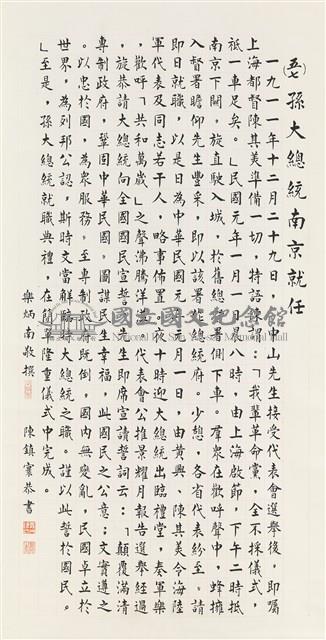 (五七)孫大總統南京就任
一九一一年十二月二十九日,中山先生接受代表會選舉後,即囑
上海都督陳其美準備一切,特語陳謂:「我輩革命黨,全不採儀式,
祗一車足矣。」民國元年一月一日晨八時,由上海啟節,下午二時抵
南京下關,旋直駛入城,於舊總督署側下車。羣衆在歡呼聲中,蜂擁
入督署瞻仰先生豐采,即以該署為總統府。少憩,各省代表紛至,請
即日就職,以是日為中華民國元年元月一日,由黃興、陳其美令海陸
軍代表及同志若干人,略事佈置,夜十時迎大總統出臨禮堂,奏軍樂
,歡呼「共和萬歲」之聲沸騰洋溢。代表會公推景耀月報告選舉經過
,旋恭請大總統向全國國民宣誓。先生即席宣讀誓詞云:「顛覆滿清
專制政府,鞏固中華民國,圖謀民生幸福,此國民之公意,文實遵之
,以忠於國,為衆服務。至專制政府既倒,國內無變亂,民國卓立於
世界,為列邦公認,斯時文當解臨時大總統之職。謹以此誓於國民。
」至是,孫大總統就職典禮,在簡單隆重儀式中完成。
樂炳南敬撰 陳鎮寰恭書
國立國父紀念館